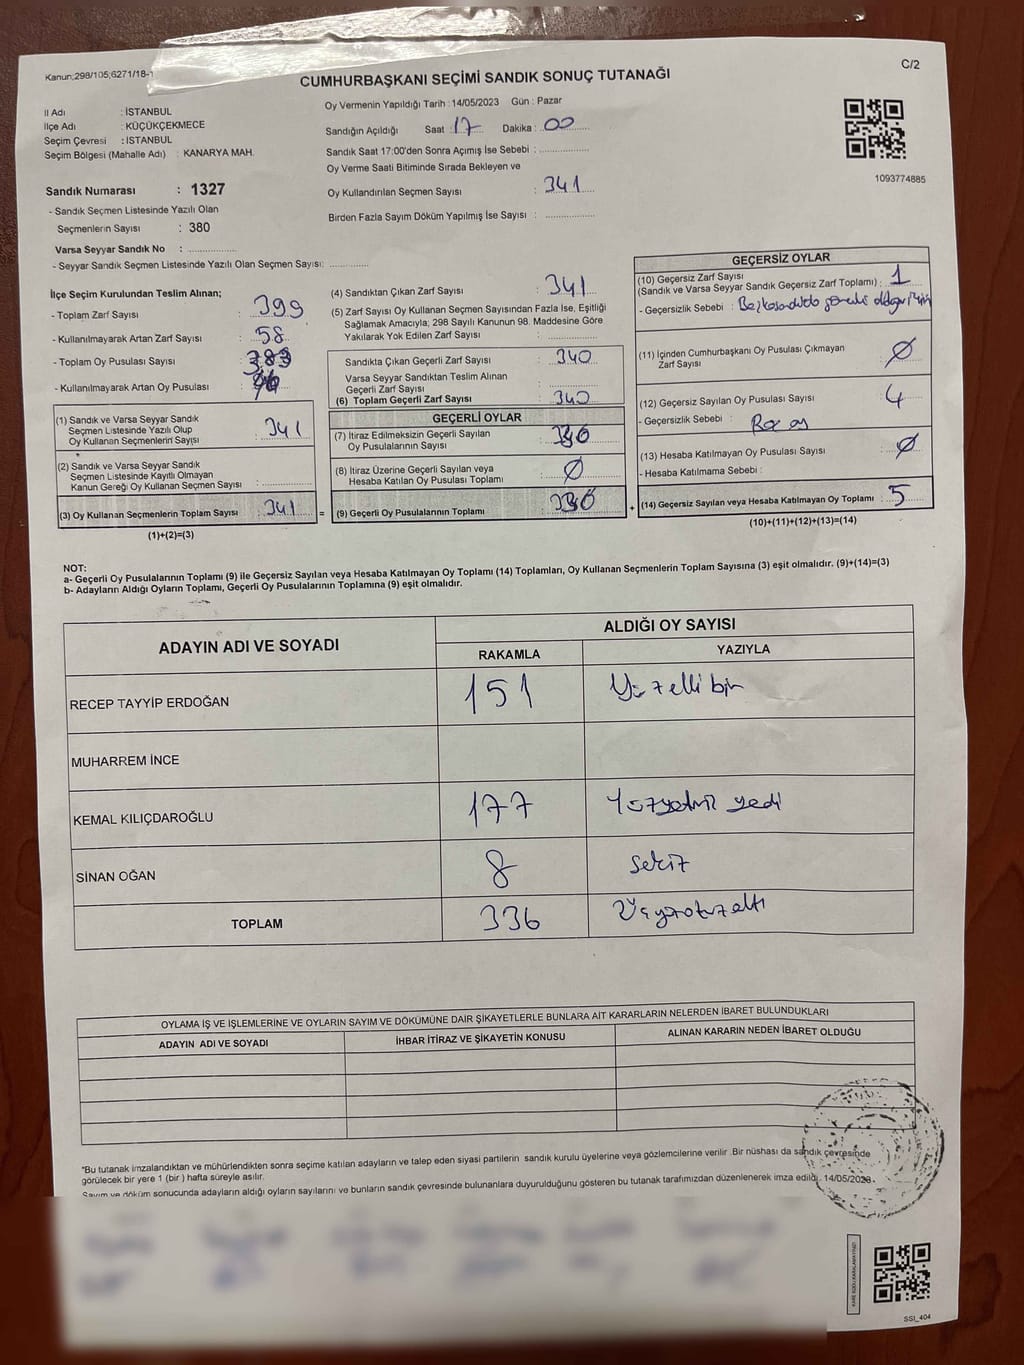 Kanun;298/105;6271/18-1
C/2
CUMHURBAŞKANI SEÇİMİ SANDIK SONUÇ TUTANAĞI
İl Adı : İSTANBUL
İlçe Adı : KÜÇÜKÇEKMECE
Seçim Çevresi : İSTANBUL
Seçim Bölgesi (Mahalle Adı) : KANARYA MAH.
Oy Vermenin Yapıldığı Tarih : 14/05/2023 Gün : Pazar
Sandığın Açıldığı Saat : 17 Dakika : 00
Sandık Saat 17:00'den Sonra Açımış İse Sebebi :
Oy Verme Saati Bitiminde Sırada Bekleyen ve
Oy Kullandırılan Seçmen Sayısı : 341
Birden Fazla Sayım Döküm Yapılmış İse Sayısı :
1093774885
Sandık Numarası : 1327
- Sandık Seçmen Listesinde Yazılı Olan
Seçmenlerin Sayısı : 380
Varsa Seyyar Sandık No :
- Seyyar Sandık Seçmen Listesinde Yazılı Olan Seçmen Sayısı:
İlçe Seçim Kurulundan Teslim Alınan;
- Toplam Zarf Sayısı : 399
- Kullanılmayarak Artan Zarf Sayısı : 58
- Toplam Oy Pusulası Sayısı :
- Kullanılmayarak Artan Oy Pusulası :
(1) Sandık ve Varsa Seyyar Sandık
Seçmen Listesinde Yazılı Olup
Oy Kullanan Seçmenlerin Sayısı : 341
(2) Sandık ve Varsa Seyyar Sandık
Seçmen Listesinde Kayıtlı Olmayan
Kanun Gereği Oy Kullanan Seçmen Sayısı :
(3) Oy Kullanan Seçmenlerin Toplam Sayısı : 341 =
(1)+(2)=(3)
(4) Sandıktan Çıkan Zarf Sayısı : 341
(5) Zarf Sayısı Oy Kullanan Seçmen Sayısından Fazla İse, Eşitliği
Sağlamak Amacıyla; 298 Sayılı Kanunun 98. Maddesine Göre
Yakılarak Yok Edilen Zarf Sayısı :
Sandıkta Çıkan Geçerli Zarf Sayısı : 340
Varsa Seyyar Sandıktan Teslim Alınan
Geçerli Zarf Sayısı :
(6) Toplam Geçerli Zarf Sayısı : 340
GEÇERLİ OYLAR
(7) İtiraz Edilmeksizin Geçerli Sayılan
Oy Pusulalarının Sayısı : 336
(8) İtiraz Üzerine Geçerli Sayılan veya
Hesaba Katılan Oy Pusulası Toplamı : Ø
(9) Geçerli Oy Pusulalarının Toplamı : 336 +
GEÇERSİZ OYLAR
(10) Geçersiz Zarf Sayısı
(Sandık ve Varsa Seyyar Sandık Geçersiz Zarf Toplamı) : 1
- Geçersizlik Sebebi :
(11) İçinden Cumhurbaşkanı Oy Pusulası Çıkmayan
Zarf Sayısı : Ø
(12) Geçersiz Sayılan Oy Pusulası Sayısı : 4
- Geçersizlik Sebebi :
(13) Hesaba Katılmayan Oy Pusulası Sayısı : Ø
- Hesaba Katılmama Sebebi :
(14) Geçersiz Sayılan veya Hesaba Katılmayan Oy Toplamı : 5
(10)+(11)+(12)+(13)=(14)
NOT:
a- Geçerli Oy Pusulalarının Toplamı (9) ile Geçersiz Sayılan veya Hesaba Katılmayan Oy Toplamı (14) Toplamları, Oy Kullanan Seçmenlerin Toplam Sayısına (3) eşit olmalıdır. (9)+(14)=(3)
b- Adayların Aldığı Oyların Toplamı, Geçerli Oy Pusulalarının Toplamına (9) eşit olmalıdır.
ADAYIN ADI VE SOYADI
ALDIĞI OY SAYISI
RAKAMLA YAZIYLA
RECEP TAYYİP ERDOĞAN 151 Yüzellibir
MUHARREM İNCE
KEMAL KILIÇDAROĞLU 177 Yüzyetmiş yedi
SİNAN OĞAN 8 sekiz
TOPLAM 336 Üçyüzotuzaltı
OYLAMA İŞ VE İŞLEMLERİNE VE OYLARIN SAYIM VE DÖKÜMÜNE DAİR ŞİKAYETLERLE BUNLARA AİT KARARLARIN NELERDEN İBARET BULUNDUKLARI
ADAYIN ADI VE SOYADI İHBAR İTİRAZ VE ŞİKAYETİN KONUSU ALINAN KARARIN NEDEN İBARET OLDUĞU
*Bu tutanak imzalandıktan ve mühürlendikten sonra seçime katılan adayların ve talep eden siyasi partilerin sandık kurulu üyelerine veya gözlemcilerine verilir .Bir nüshası da sandık çevresinde
görülecek bir yere 1 (bir ) hafta süreyle asılır.
Sayım ve döküm sonucunda adayların aldığı oyların sayılarını ve bunların sandık çevresinde bulunanlara duyurulduğunu gösteren bu tutanak tarafımızdan düzenlenerek imza edildi. 14/05/2023
SSI_404